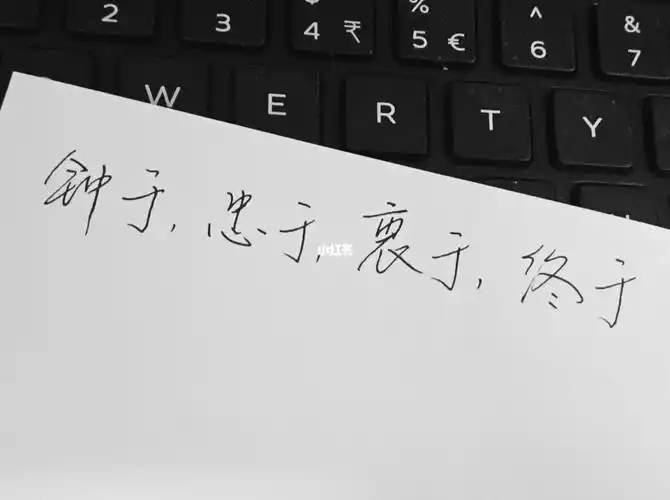 2 3 4 ₹ % 5 € ^ 6 & 7
W E R T Y
钟于, 忠于, 衷于, 终于
小红书